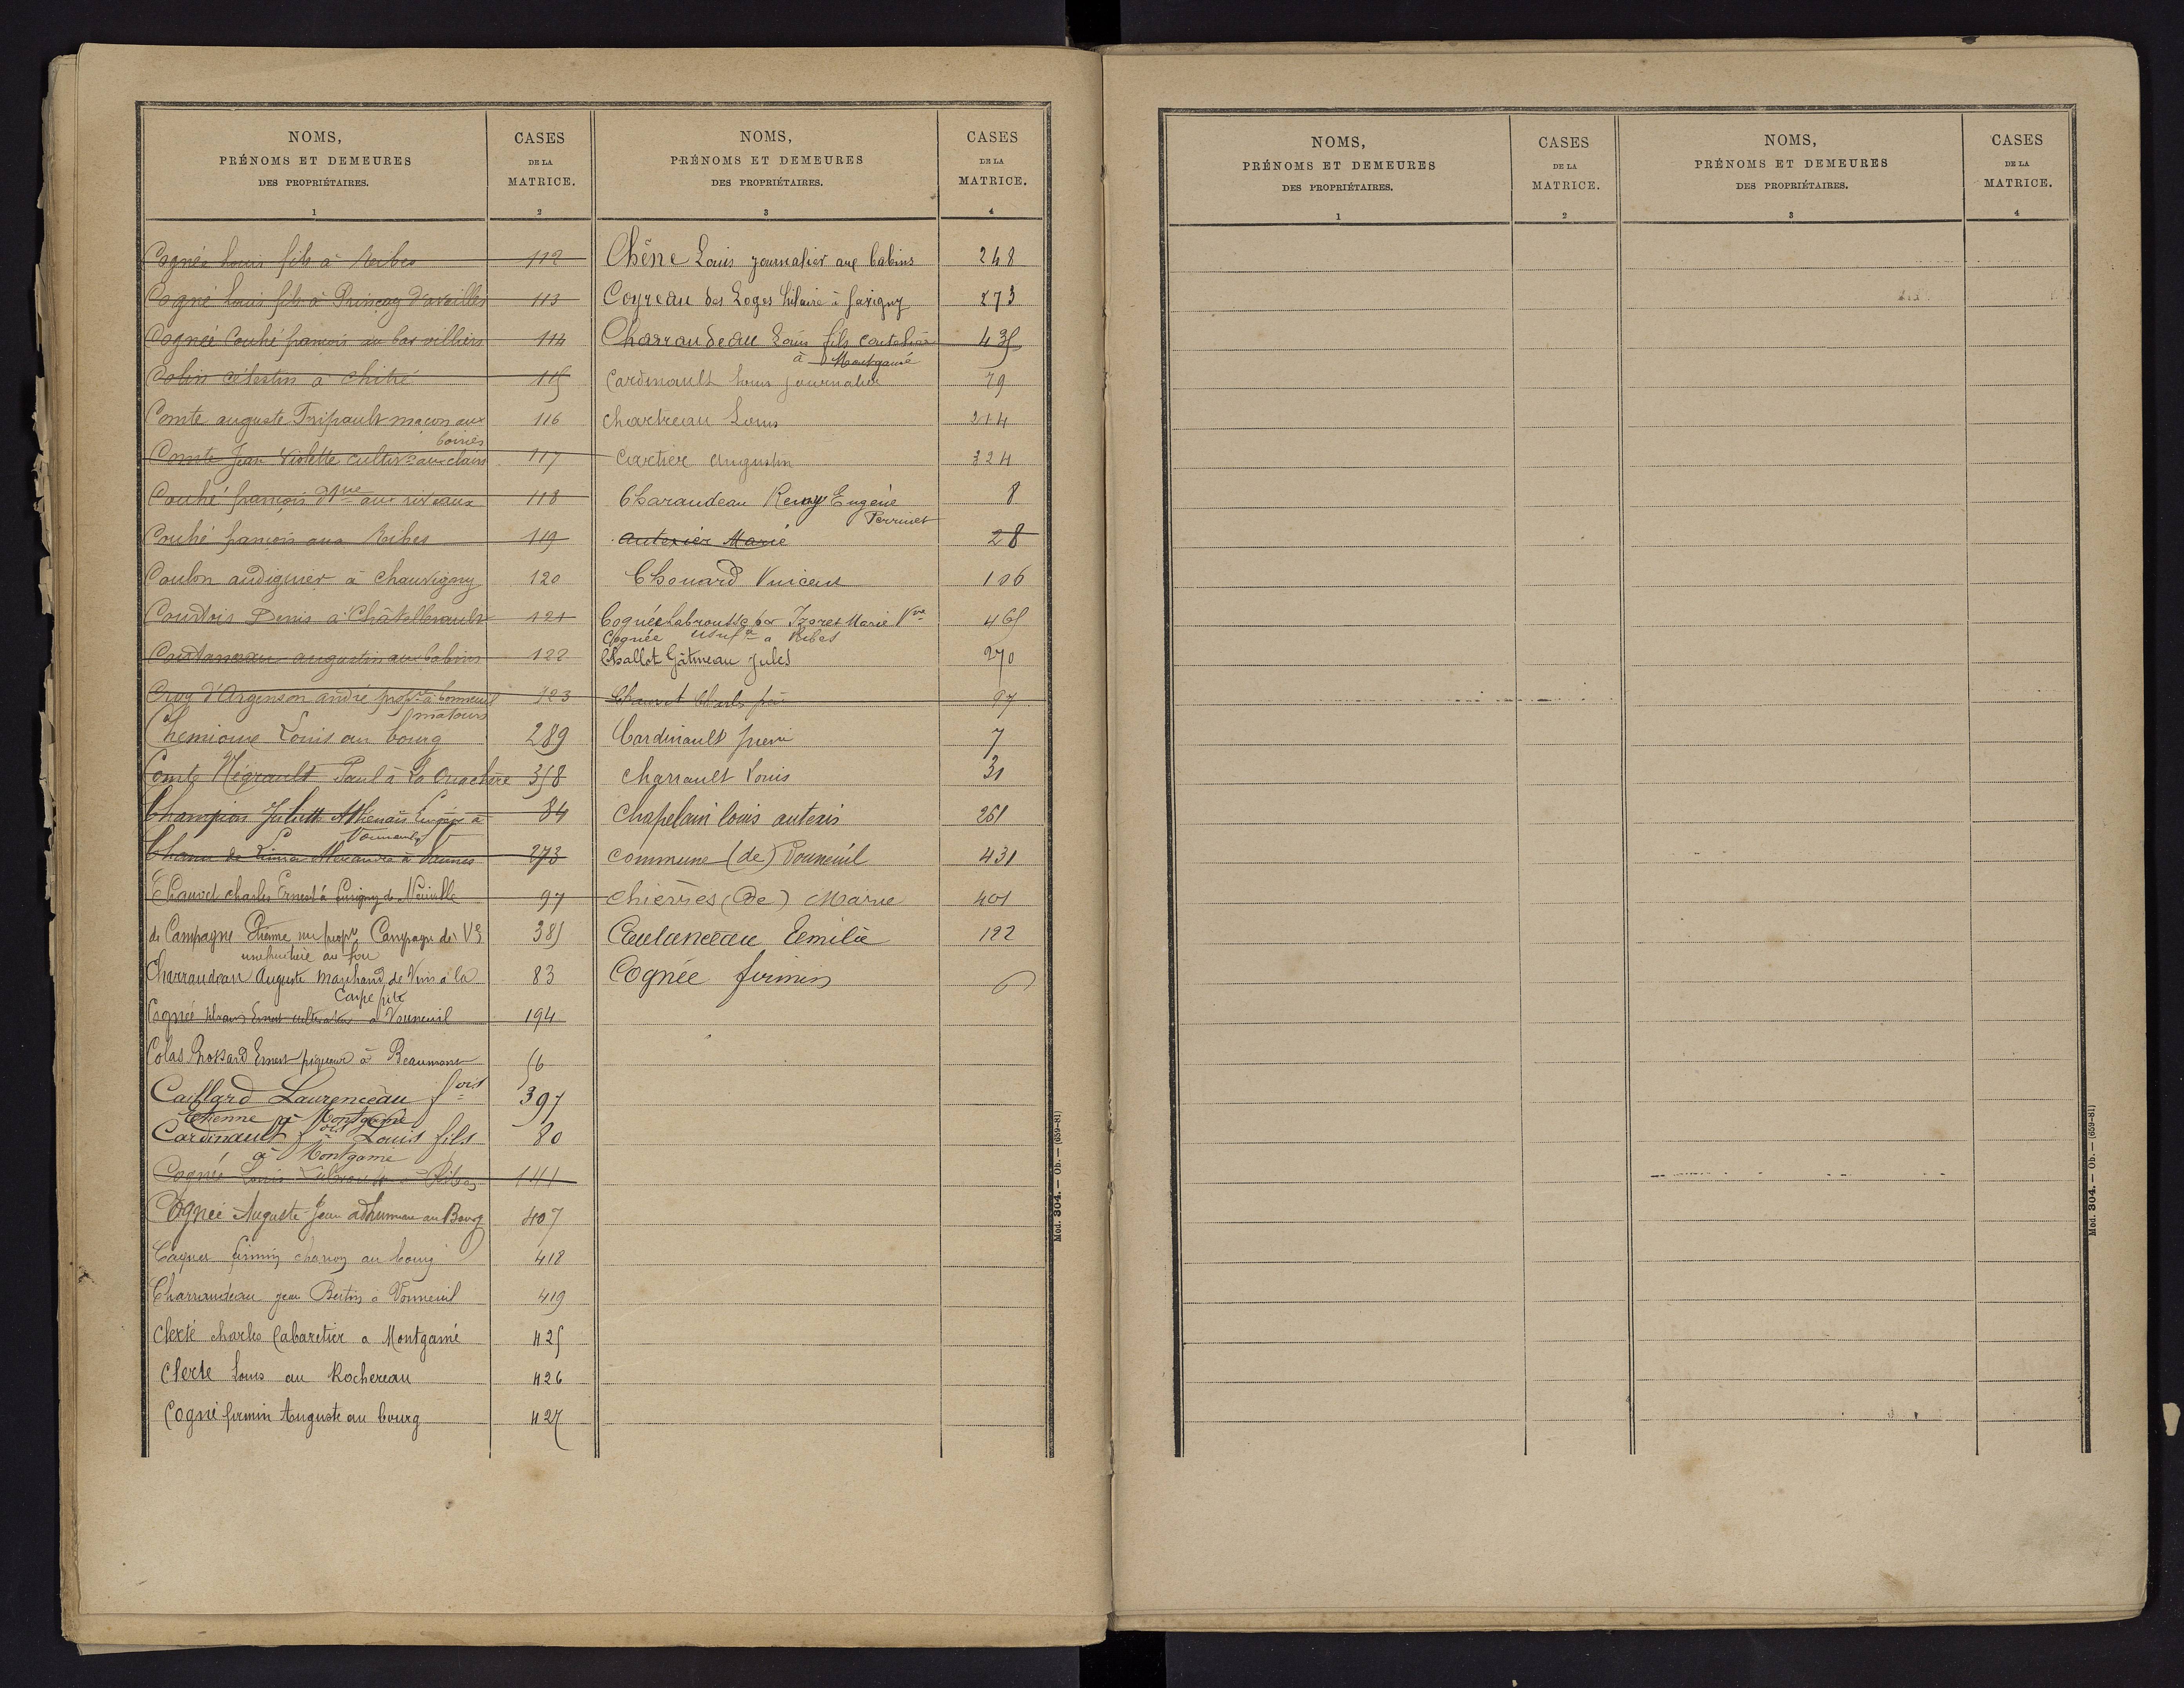 NOMS,
PRÉNOMS ET DEMEURES
DES PROPRIÉTAIRES.
1
CASES
DE LA
MATRICE.
2
Cognée Louis fils à Ribes 112
Cogné Louis fils à Prinçay d'availles 113
Cognée Couhé françois au bas villiers 114
Colin célestin à chitré 115
Comte auguste Fripault maçon aux 116
boiries
Comte Jean Violette cultivr aux clairs 117
Couhé françois aux riveaux 118
Couhé françois aux Ribes 119
Coulon audiguier à Chauvigny 120
Courtois Denis à Châtellerault 121
Coutanceau augustin aux babins 122
Cruy d'Argenson andré propre à bonneuil 123
matours
Chemioux Louis au bourg 289
Comte Négrault Paul à La 358
Champion Juliette Athénaïs à 84
Vouneuil
Alexandre à Vannes 273
Chauvet charles Ernest à de Neuville 97
de Campagne Etienne nu propre Campagne de Ve 385
usufruitière au fou
Charraudeau Auguste Marchand de Vin à la 83
Carpe frite
Cognée Ernest cultivateur à Vouneuil 194
Colas Ernest piqueur à Beaumont 56
Caillard Laurenceau fois 397
Etienne à Montgamé
Cardinault fois Louis fils 80
à Montgamé
Cognée Louis à Ribes 141
Cognée Auguste Jean au Bourg 407
Cognée firmin charron au bourg 418
Charraudeau jean Bertin à Vouneuil 419
Clerté charles Cabaretier a Montgamé 425
Clerte Louis au Rochereau 426
Cogné firmin Auguste au bourg 427
NOMS,
PRÉNOMS ET DEMEURES
DES PROPRIÉTAIRES.
3
CASES
DE LA
MATRICE.
4
Chêne Louis journalier aux babins 248
Coyreau des Loges hilaire à Savigny 273
Charraudeau Louis fils coutelier 435
à Montgamé
Cardinault Louis journalier 79
Chartreau Louis 214
Cartier Augustin 324
Charaudeau Remy Eugène 8
Perrinet
Autexier Marie 28
Chouard Vincent 106
Cognée Labrousse par Izoret Marie Vve 465
Cognée usufre a Ribes
Challot Gâtineau Jules 270
Chauvet Charles père 97
Cardinault pierre 7
Charrault Louis 31
Chapelain louis autexis 261
commune (de) Vouneuil 431
Chièvres (De) Marie 401
Coulanceau Emilie 122
Cognée firmin 6
Mod. 304. — Ob. — (659-81)
NOMS,
PRÉNOMS ET DEMEURES
DES PROPRIÉTAIRES.
1
CASES
DE LA
MATRICE.
2
NOMS,
PRÉNOMS ET DEMEURES
DES PROPRIÉTAIRES.
3
CASES
DE LA
MATRICE.
4
Mod. 304. — Ob. — (659-81)